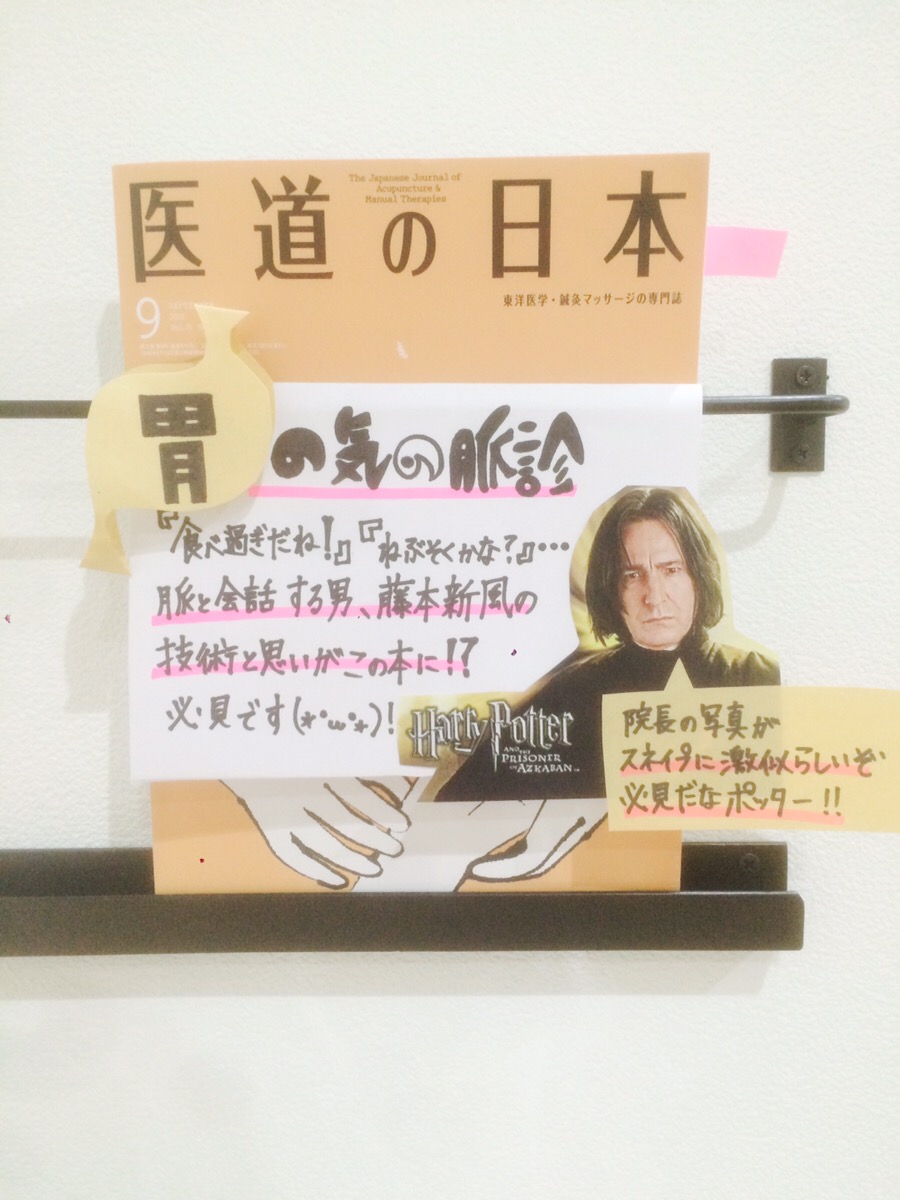 医道の日本
The Japanese Journal of
Acupuncture &
Manual Therapies
東洋医学・鍼灸マッサージの専門誌
9
胃の気の脈診
『食べ過ぎだね!』『ねぶそくかな?』…
脈と会話する男、藤本新風の
技術と思いがこの本に!?
必見です(*・ω・*)!
Harry Potter
AND THE
PRISONER
OF AZKABAN
院長の写真が
スネイプに激似らしいぞ
必見だなポッター!!